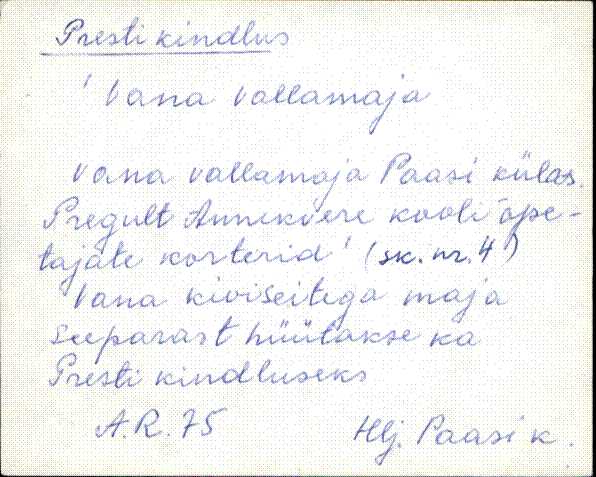 Presti kindlus
' Vana vallamaja
Vana vallamaja Paasi külas.
Pregult Annikvere kooli õpe-
tajate korterid' (sk. nr. 4)
Vana kiviseitega maja
seeparast hüütakse ka
Presti kindluseks
A.R. 75 Hlj. Paasi k.